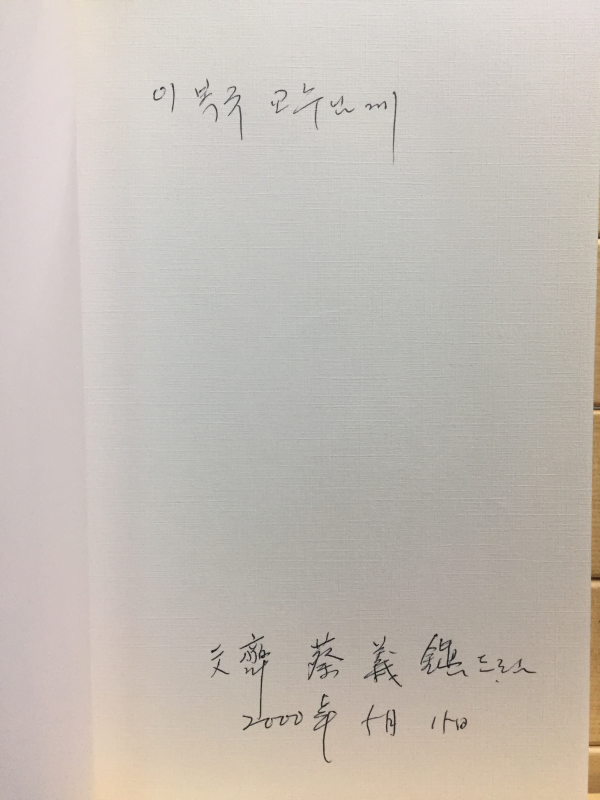 이 복규 교수님께
文齋 蔡 義 드림
2000年 5月 15日